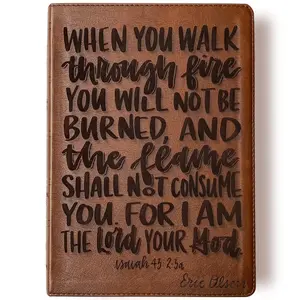 WHEN YOU WALK
through fire
YOU WILL NOT BE
BURNED, AND
the flame
SHALL NOT CONSUME
YOU. FOR I AM
THE Lord YOUR God.
Isaiah 43:2-3a
Eric Olson